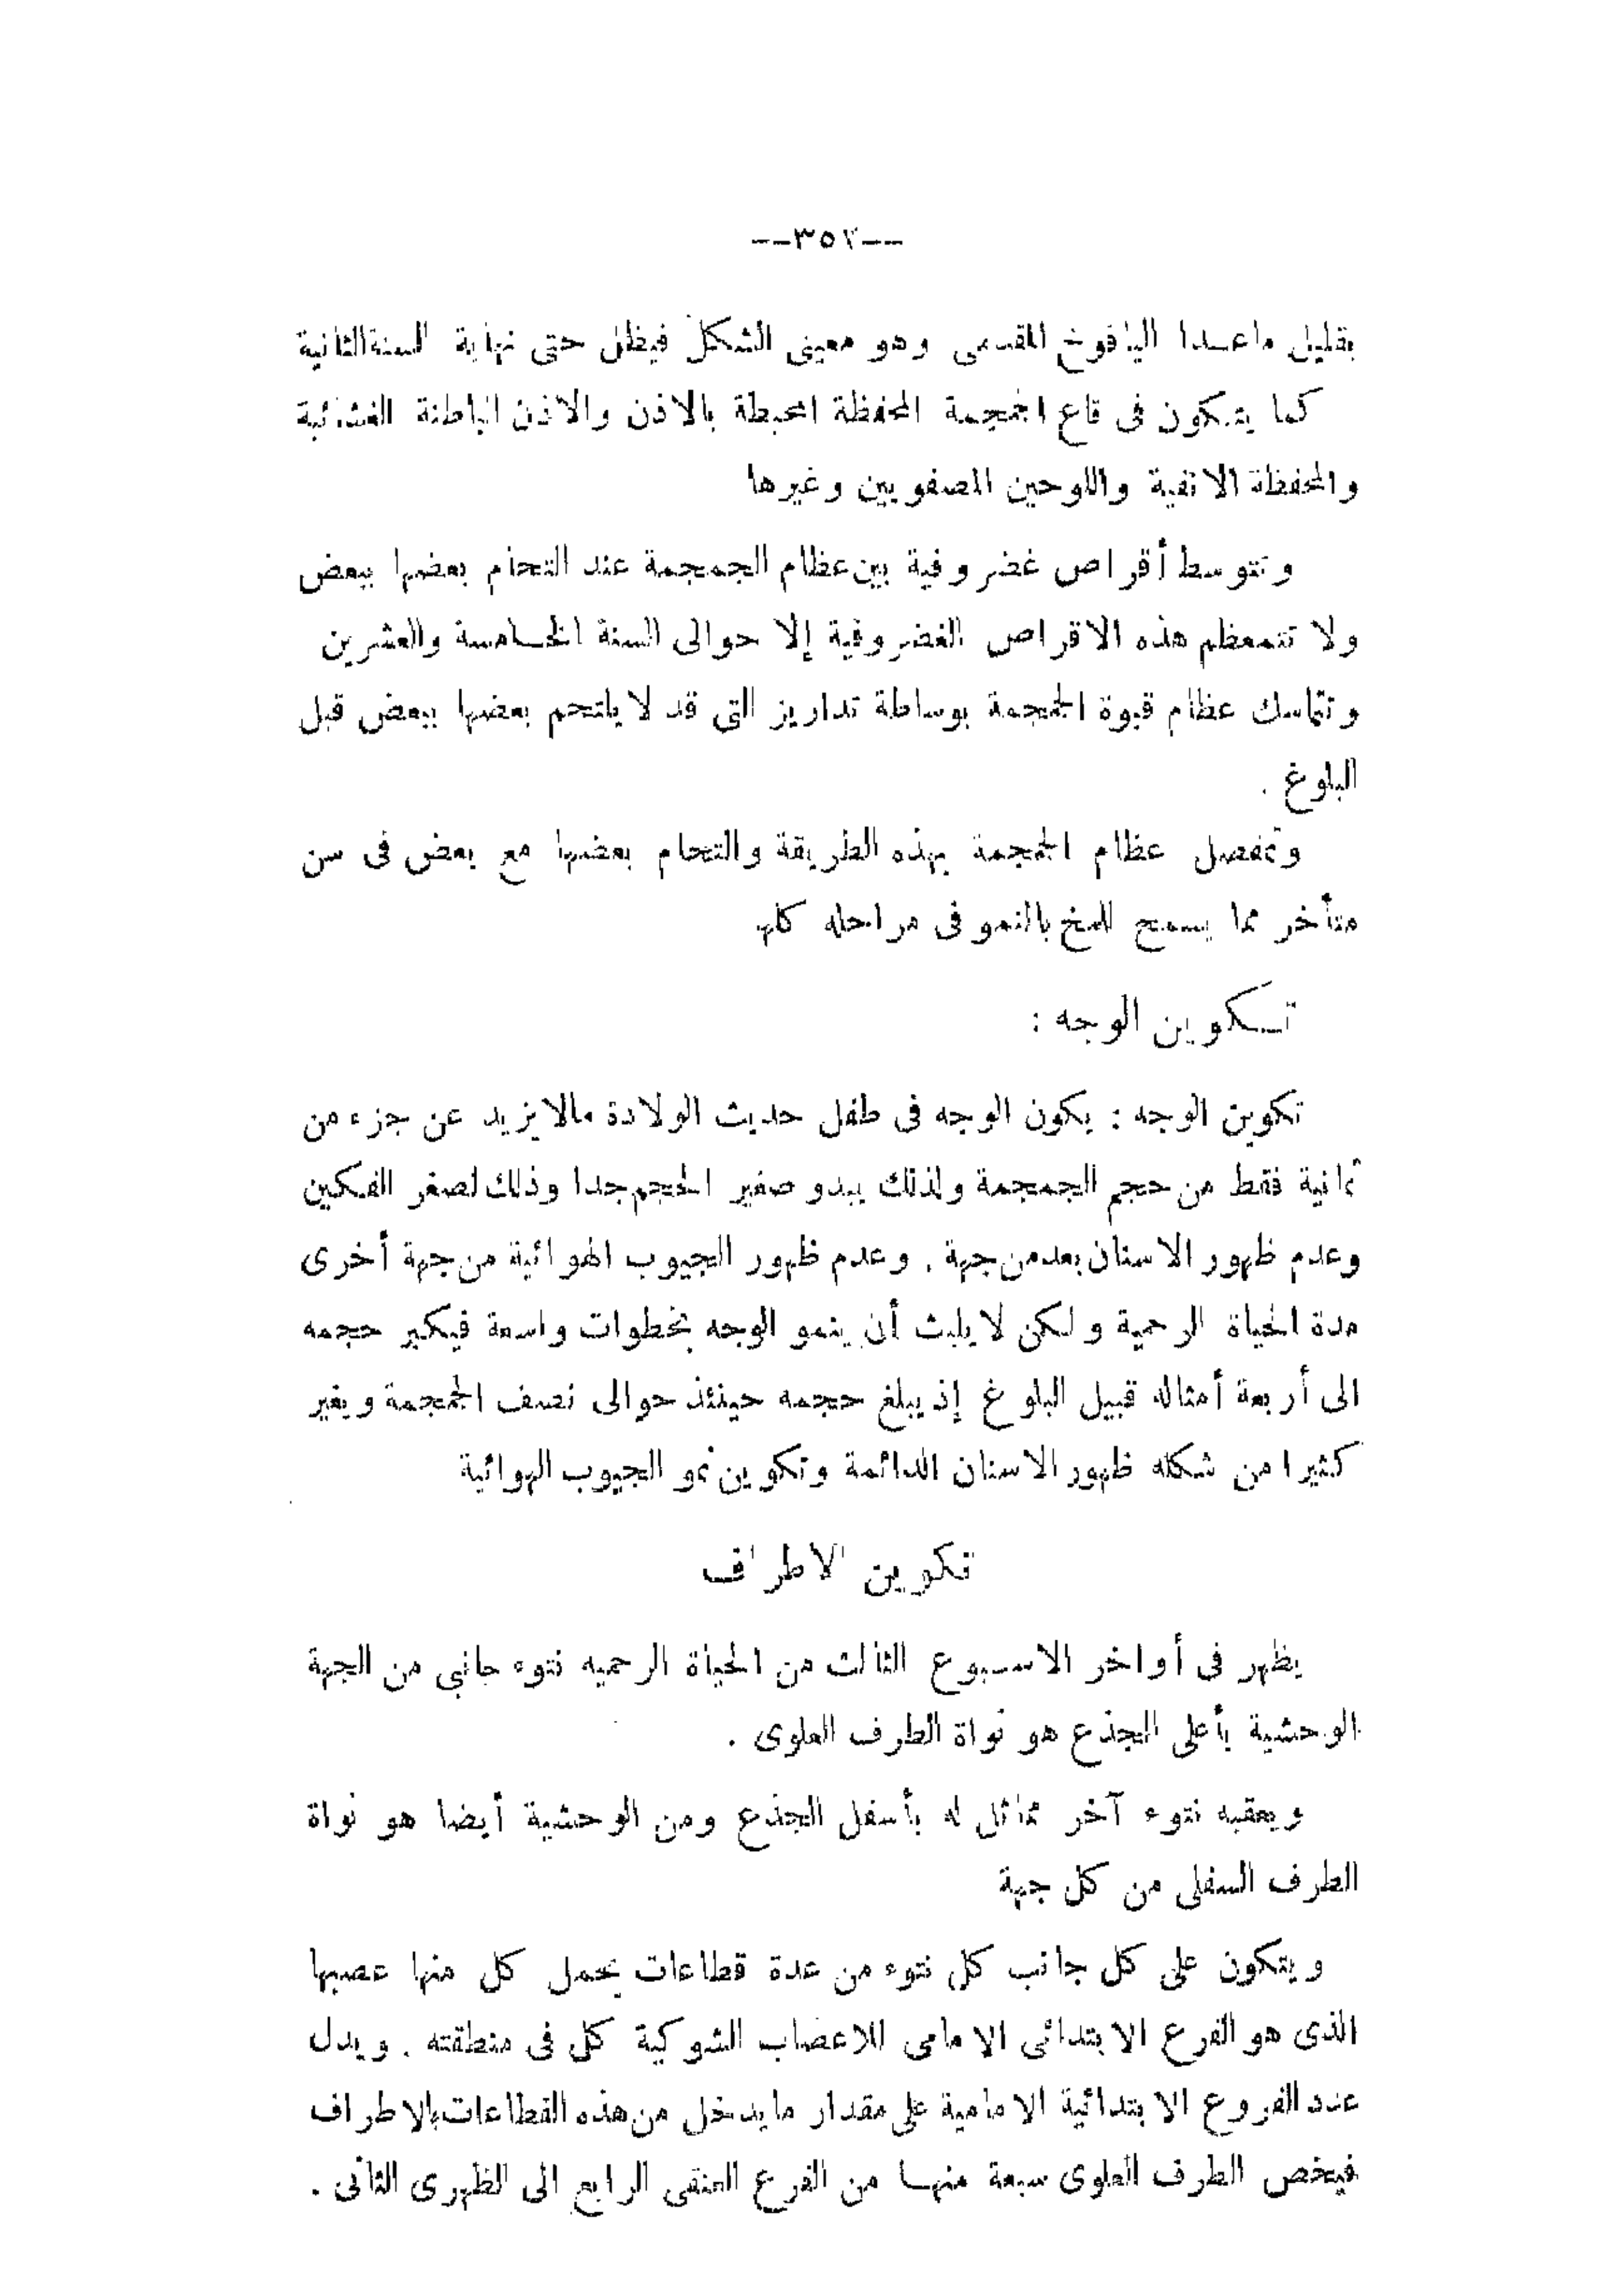 --٣٥٢--
بقليل ماعدا اليافوخ المقدمى وهو معينى الشكل فيظل حتى نهاية السنة الثانية
كما يتكون فى قاع الجمجمة المحفظة المحيطة بالاذن والاذن الباطنة الغشائية
والمحفظة الانفية واللوحين الصفويين وغيرها
وتتوسط أقراص غضروفية بين عظام الجمجمة عند التحام بعضها ببعض
ولا تتمعظم هذه الاقراص الغضروفية إلا حوالى السنة الخامسة والعشرين
وتتماسك عظام قبوة الجمجمة بوساطة تداريز التى قد لا يلتحم بعضها ببعض قبل
البلوغ .
وتمفصل عظام الجمجمة بهذه الطريقة والتحام بعضها مع بعض فى سن
متأخر مما يسمح للمخ بالنمو فى مراحله كلها
تكوين الوجه :
تكوين الوجه : يكون الوجه فى طفل حديث الولادة مالا يزيد عن جزء من
ثمانية فقط من حجم الجمجمة ولذلك يبدو صغير الحجم جدا وذلك لصغر الفكين
وعدم ظهور الاسنان بعد من جهة . وعدم ظهور الجيوب الهوائية من جهة أخرى
مدة الحياة الرحمية ولكن لا يلبث أن ينمو الوجه بخطوات واسعة فيكبر حجمه
الى أربعة أمثاله قبيل البلوغ إذ يبلغ حجمه حينئذ حوالى نصف الجمجمة ويغير
كثيرا من شكله ظهور الاسنان الدائمة وتكوين نمو الجيوب الهوائية
تكوين الاطراف
يظهر فى أواخر الاسبوع الثالث من الحياة الرحميه نتوء جانبى من الجهة
الوحشية بأعلى الجذع هو نواة الطرف العلوى .
ويعقبه نتوء آخر مماثل له بأسفل الجذع ومن الوحشية أيضا هو نواة
الطرف السفلى من كل جهة
ويتكون على كل جانب كل نتوء من عدة قطاعات يحمل كل منها عصبها
الذى هو الفرع الابتدائى الامامى للاعصاب الشوكية كل فى منطقته . ويدل
عدد الفروع الابتدائية الامامية على مقدار ما يدخل من هذه القطاعات بالاطراف
فيخص الطرف العلوى سبعة منها من الفرع العنقى الرابع الى الظهرى الثانى .